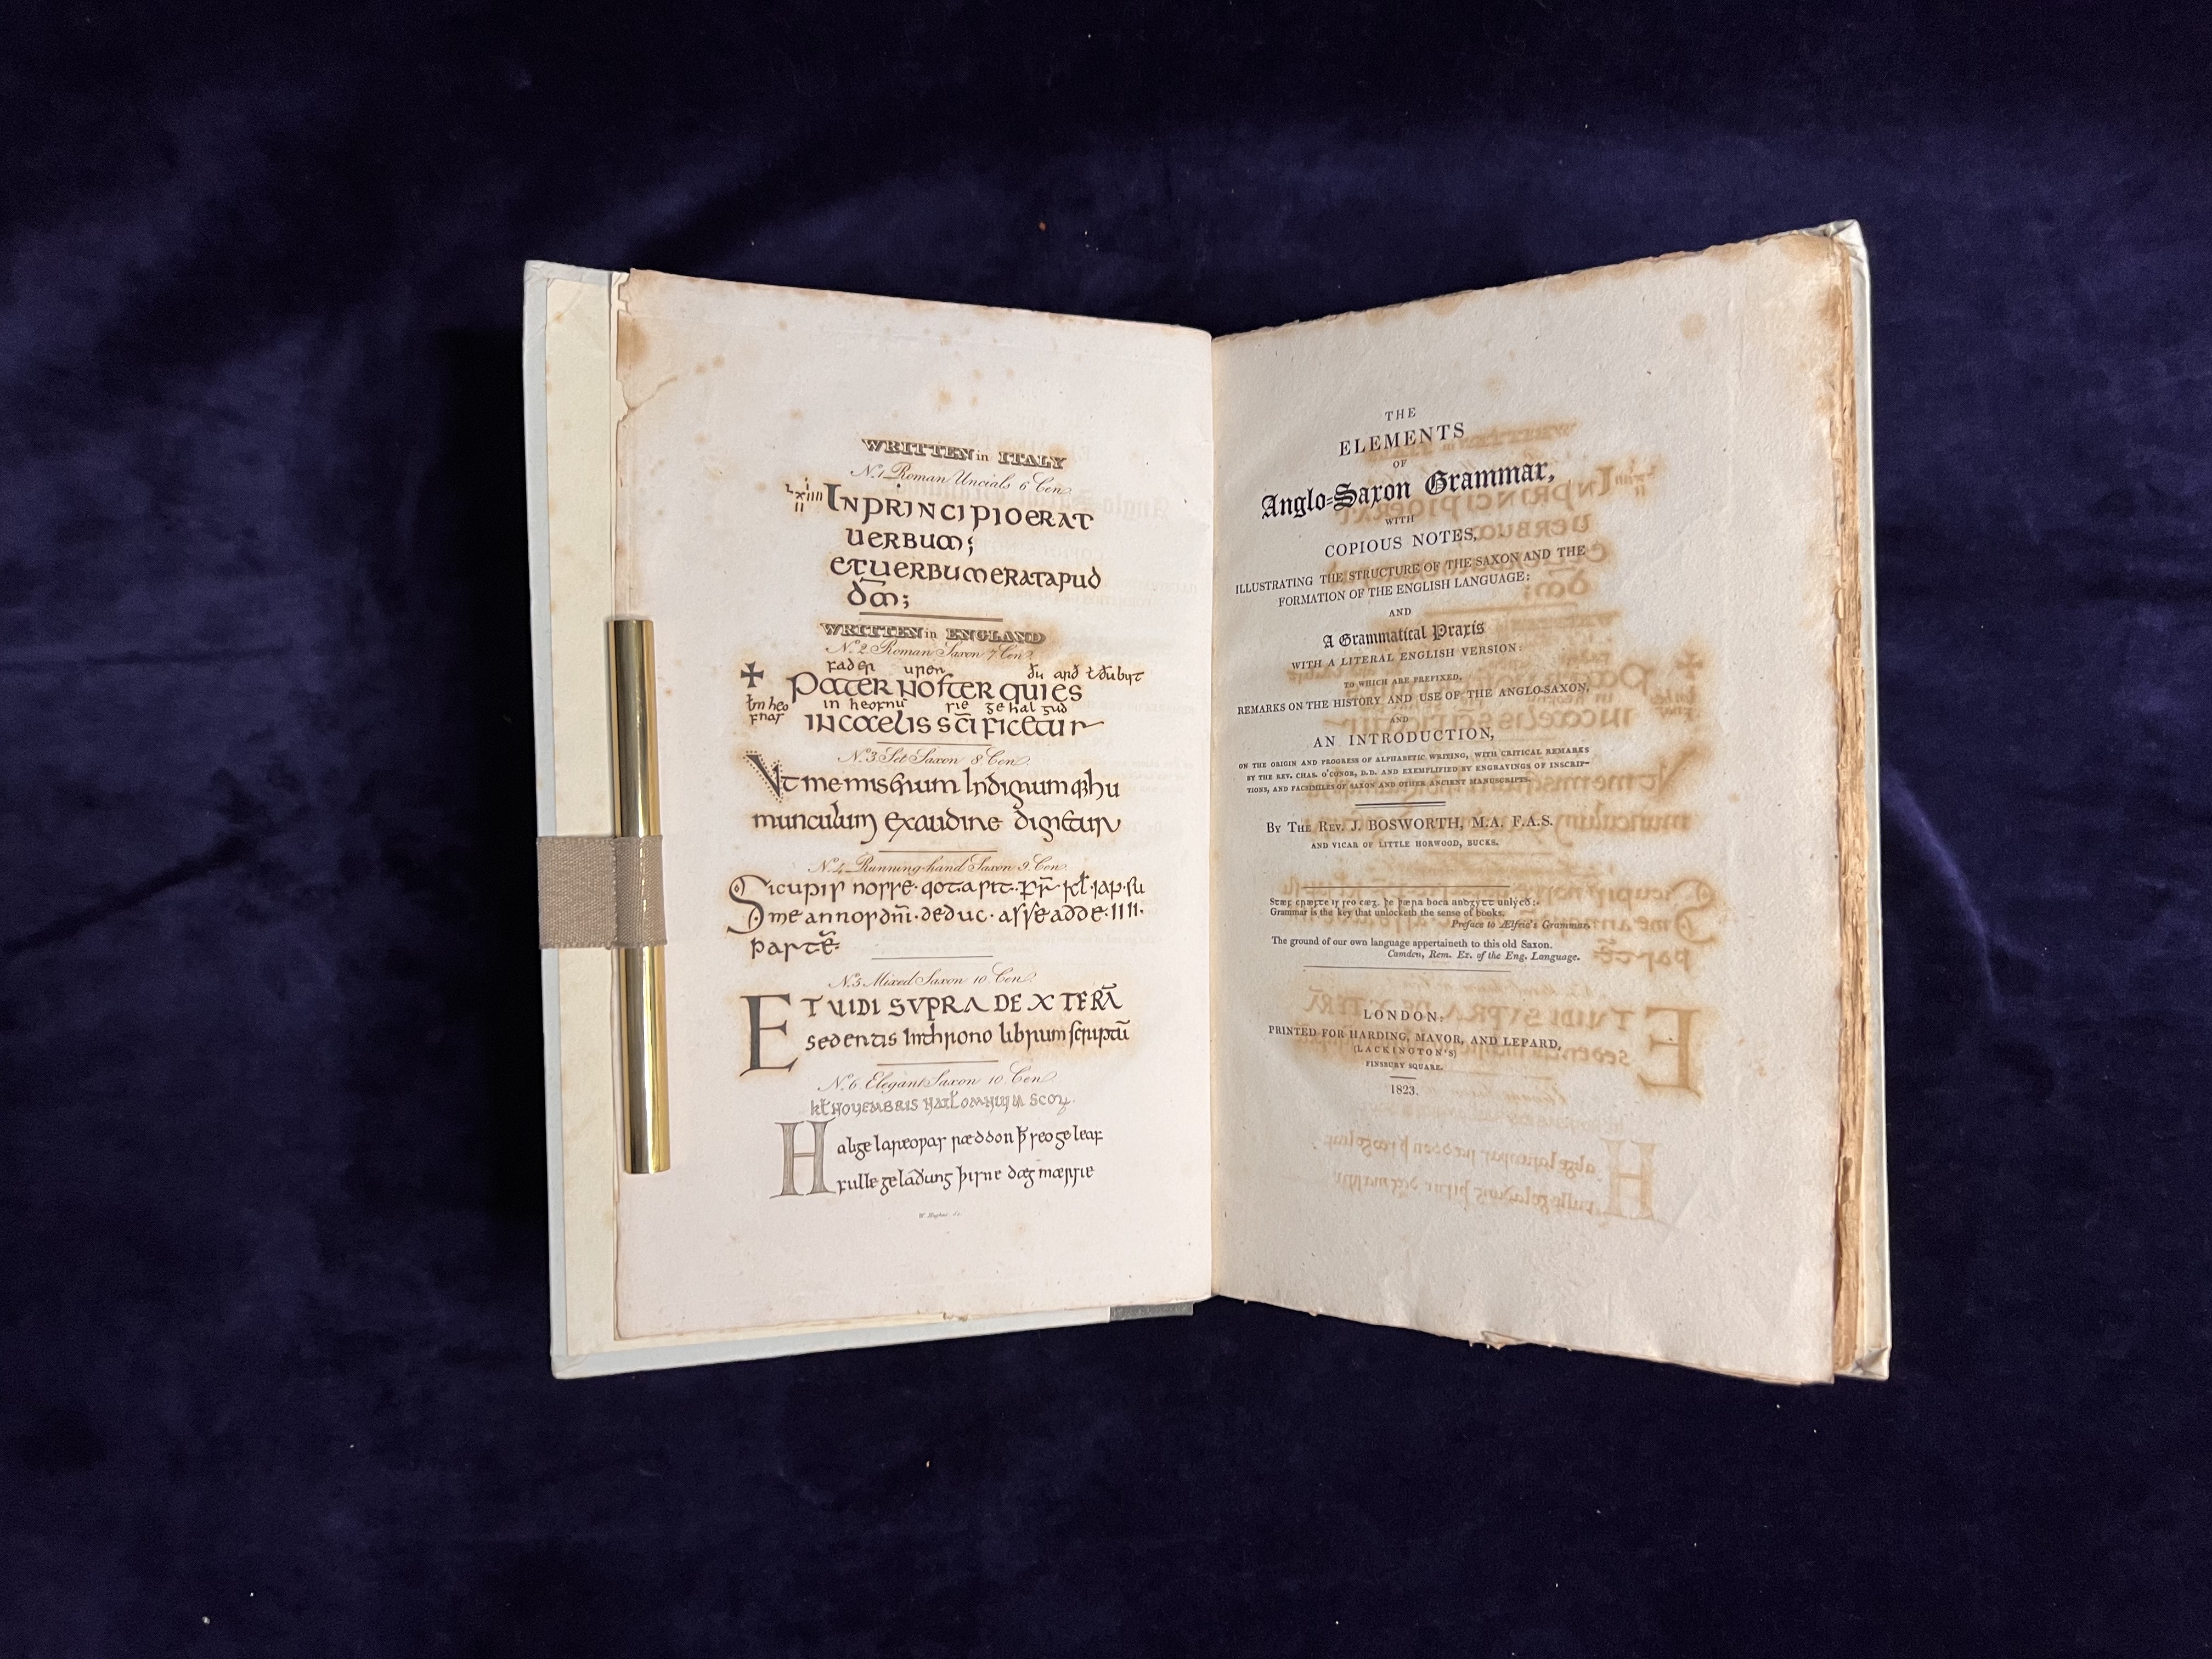 WRITTEN in ITALY
No. 1 Roman Uncials 6 Cen.
INPRINCIPIOERAT
UERBUM;
ETUERBUMERATAPUD
DM̄;
WRITTEN in ENGLAND
No. 2 Roman Saxon 7 Cen.
fader urer
PATER NOSTER QUI ES
in heofnu sie gehalgud
IN CAELIS SCIFICETUR
No. 3 Set Saxon 8 Cen.
Ut me miserum Indignum
munculum exaudire dignetur
No. 4 Running-hand Saxon 9. Cen.
Sume annos dni. deduc. asse adde. IIII.
No. 5 Mixed Saxon 10. Cen.
ET VIDI SVPRA DEXTERĀ
sedentis In throno librum scriptū
No. 6 Elegant Saxon 10. Cen.
Halige lareowas ræddon ꝥ seo geleaf
fulle geladung þisne dæg mærsie
THE
ELEMENTS
OF
Anglo-Saxon Grammar,
WITH
COPIOUS NOTES,
ILLUSTRATING THE STRUCTURE OF THE SAXON AND THE
FORMATION OF THE ENGLISH LANGUAGE:
AND
A Grammatical Praxis
WITH A LITERAL ENGLISH VERSION:
TO WHICH ARE PREFIXED,
REMARKS ON THE HISTORY AND USE OF THE ANGLO-SAXON,
AND
AN INTRODUCTION,
ON THE ORIGIN AND PROGRESS OF ALPHABETIC WRITING, WITH CRITICAL REMARKS
BY THE REV. CHAS. O'CONOR, D.D. AND EXEMPLIFIED BY ENGRAVINGS OF INSCRIP-
TIONS, AND FACSIMILES OF SAXON AND OTHER ANCIENT MANUSCRIPTS.
BY THE REV. J. BOSWORTH, M.A. F.A.S.
AND VICAR OF LITTLE HORWOOD, BUCKS.
Stæf cræfte is seo cæg, þe þæra boca andgytt unlýcð:
Grammar is the key that unlocketh the sense of books.
Preface to Ælfric's Grammar.
The ground of our own language appertaineth to this old Saxon.
Camden, Rem. Ex. of the Eng. Language.
LONDON:
PRINTED FOR HARDING, MAVOR, AND LEPARD,
(LACKINGTON'S)
FINSBURY SQUARE.
1823.